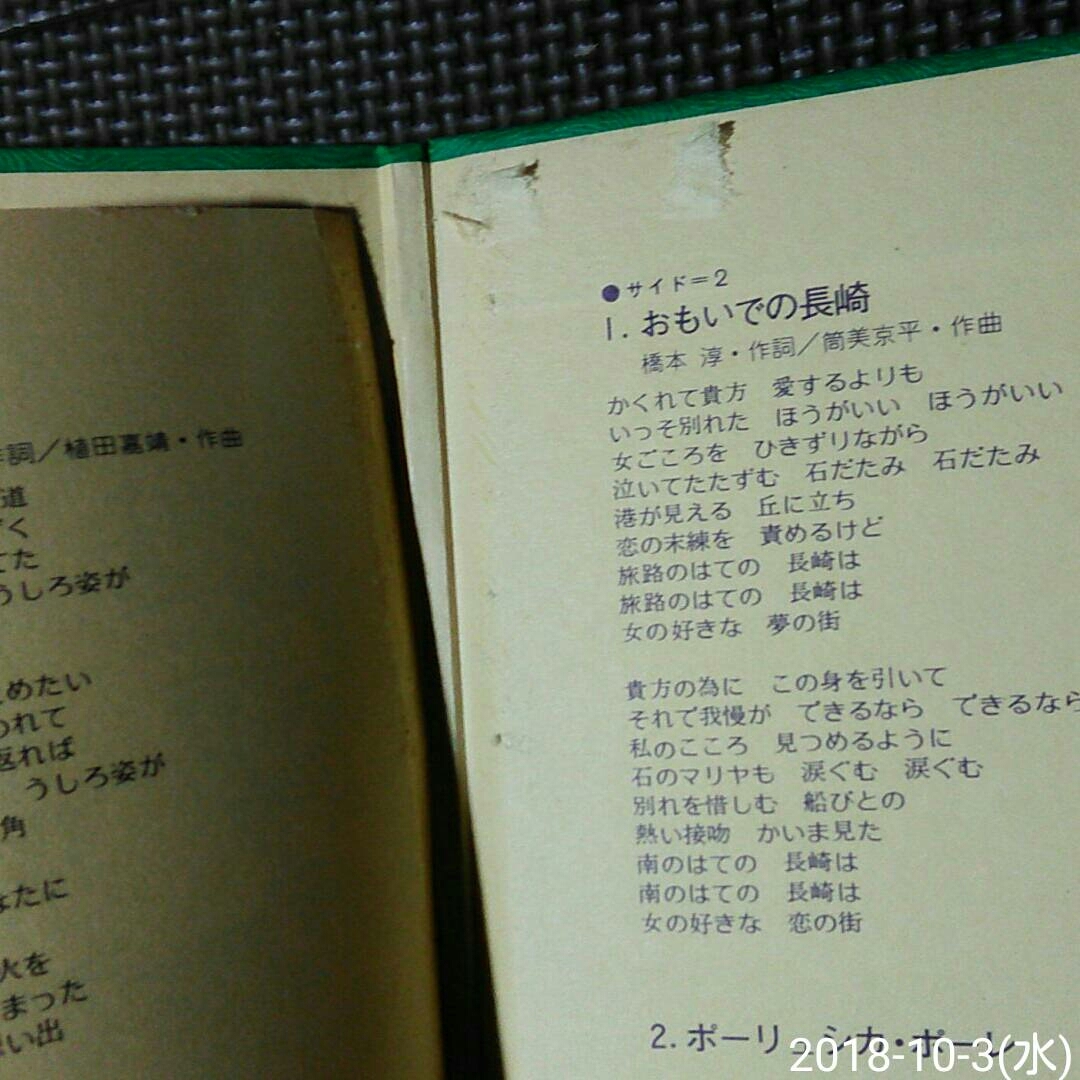 作詞／植田嘉靖・作曲
道
く
てた
うしろ姿が
めたい
われて
返れば
うしろ姿が
角
なたに
火を
まった
い出
●サイド＝2
1. おもいでの長崎
橋本 淳・作詞／筒美京平・作曲
かくれて貴方 愛するよりも
いっそ別れた ほうがいい ほうがいい
女ごころを ひきずりながら
泣いてたたずむ 石だたみ 石だたみ
港が見える 丘に立ち
恋の末練を 責めるけど
旅路のはての 長崎は
旅路のはての 長崎は
女の好きな 夢の街
貴方の為に この身を引いて
それで我慢が できるなら できるなら
私のこころ 見つめるように
石のマリヤも 涙ぐむ 涙ぐむ
別れを惜しむ 船びとの
熱い接吻 かいま見た
南のはての 長崎は
南のはての 長崎は
女の好きな 恋の街
2. ポーリュシカ・ポーレ
2018-10-3(水)